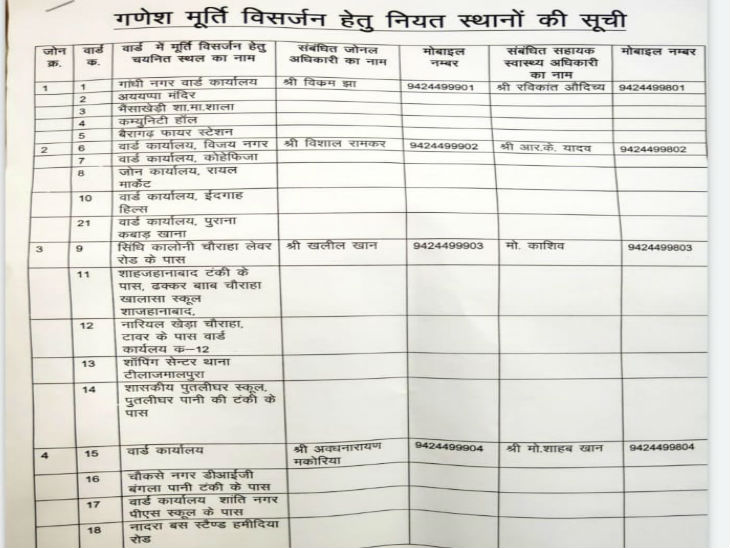 गणेश मूर्ति विसर्जन हेतु नियत स्थानों की सूची
जोन क्र. वार्ड क. वार्ड में मूर्ति विसर्जन हेतु चयनित स्थल का नाम संबंधित जोनल अधिकारी का नाम मोबाइल नम्बर संबंधित सहायक स्वास्थ्य अधिकारी का नाम मोबाइल नम्बर
1 1 गांधी नगर वार्ड कार्यालय श्री विकम झा 9424499901 श्री रविकांत औदिच्य 9424499801
2 अययप्पा मंदिर
3 भैंसाखेड़ी शा.मा.शाला
4 कम्युनिटी हॉल
5 बैरागढ़ फायर स्टेशन
2 6 वार्ड कार्यालय, विजय नगर श्री विशाल रामकर 9424499902 श्री आर.के. यादव 9424499802
7 वार्ड कार्यालय, कोहेफिजा
8 जोन कार्यालय, रायल
मार्केट
10 वार्ड कार्यालय, ईदगाह
हिल्स
21 वार्ड कार्यालय, पुराना
कबाड़ खाना
3 9 सिंधि कालोनी चौराहा लेवर श्री खलील खान 9424499903 मो. काशिव 9424499803
रोड के पास
11 शाहजहानाबाद टंकी के
पास, ढक्कर बााब चौराहा
खालासा स्कूल
शाजहानाबाद,
12 नारियल खेड़ा चौराहा,
टावर के पास वार्ड
कार्यलय क–12
13 शॉपिंग सेन्टर थाना
टीलाजमालपुरा
14 शासकीय पुतलीघर स्कूल,
पुतलीघर पानी की टंकी के
पास
4 15 वार्ड कार्यालय श्री अवधनारायण 9424499904 श्री मो.शाहब खान 9424499804
मकोरिया
16 चौकसे नगर डीआईजी
बंगला पानी टंकी के पास
17 वार्ड कार्यालय शांति नगर
पीएस स्कूल के पास
18 नादरा बस स्टैण्ड हमीदिया
रोड